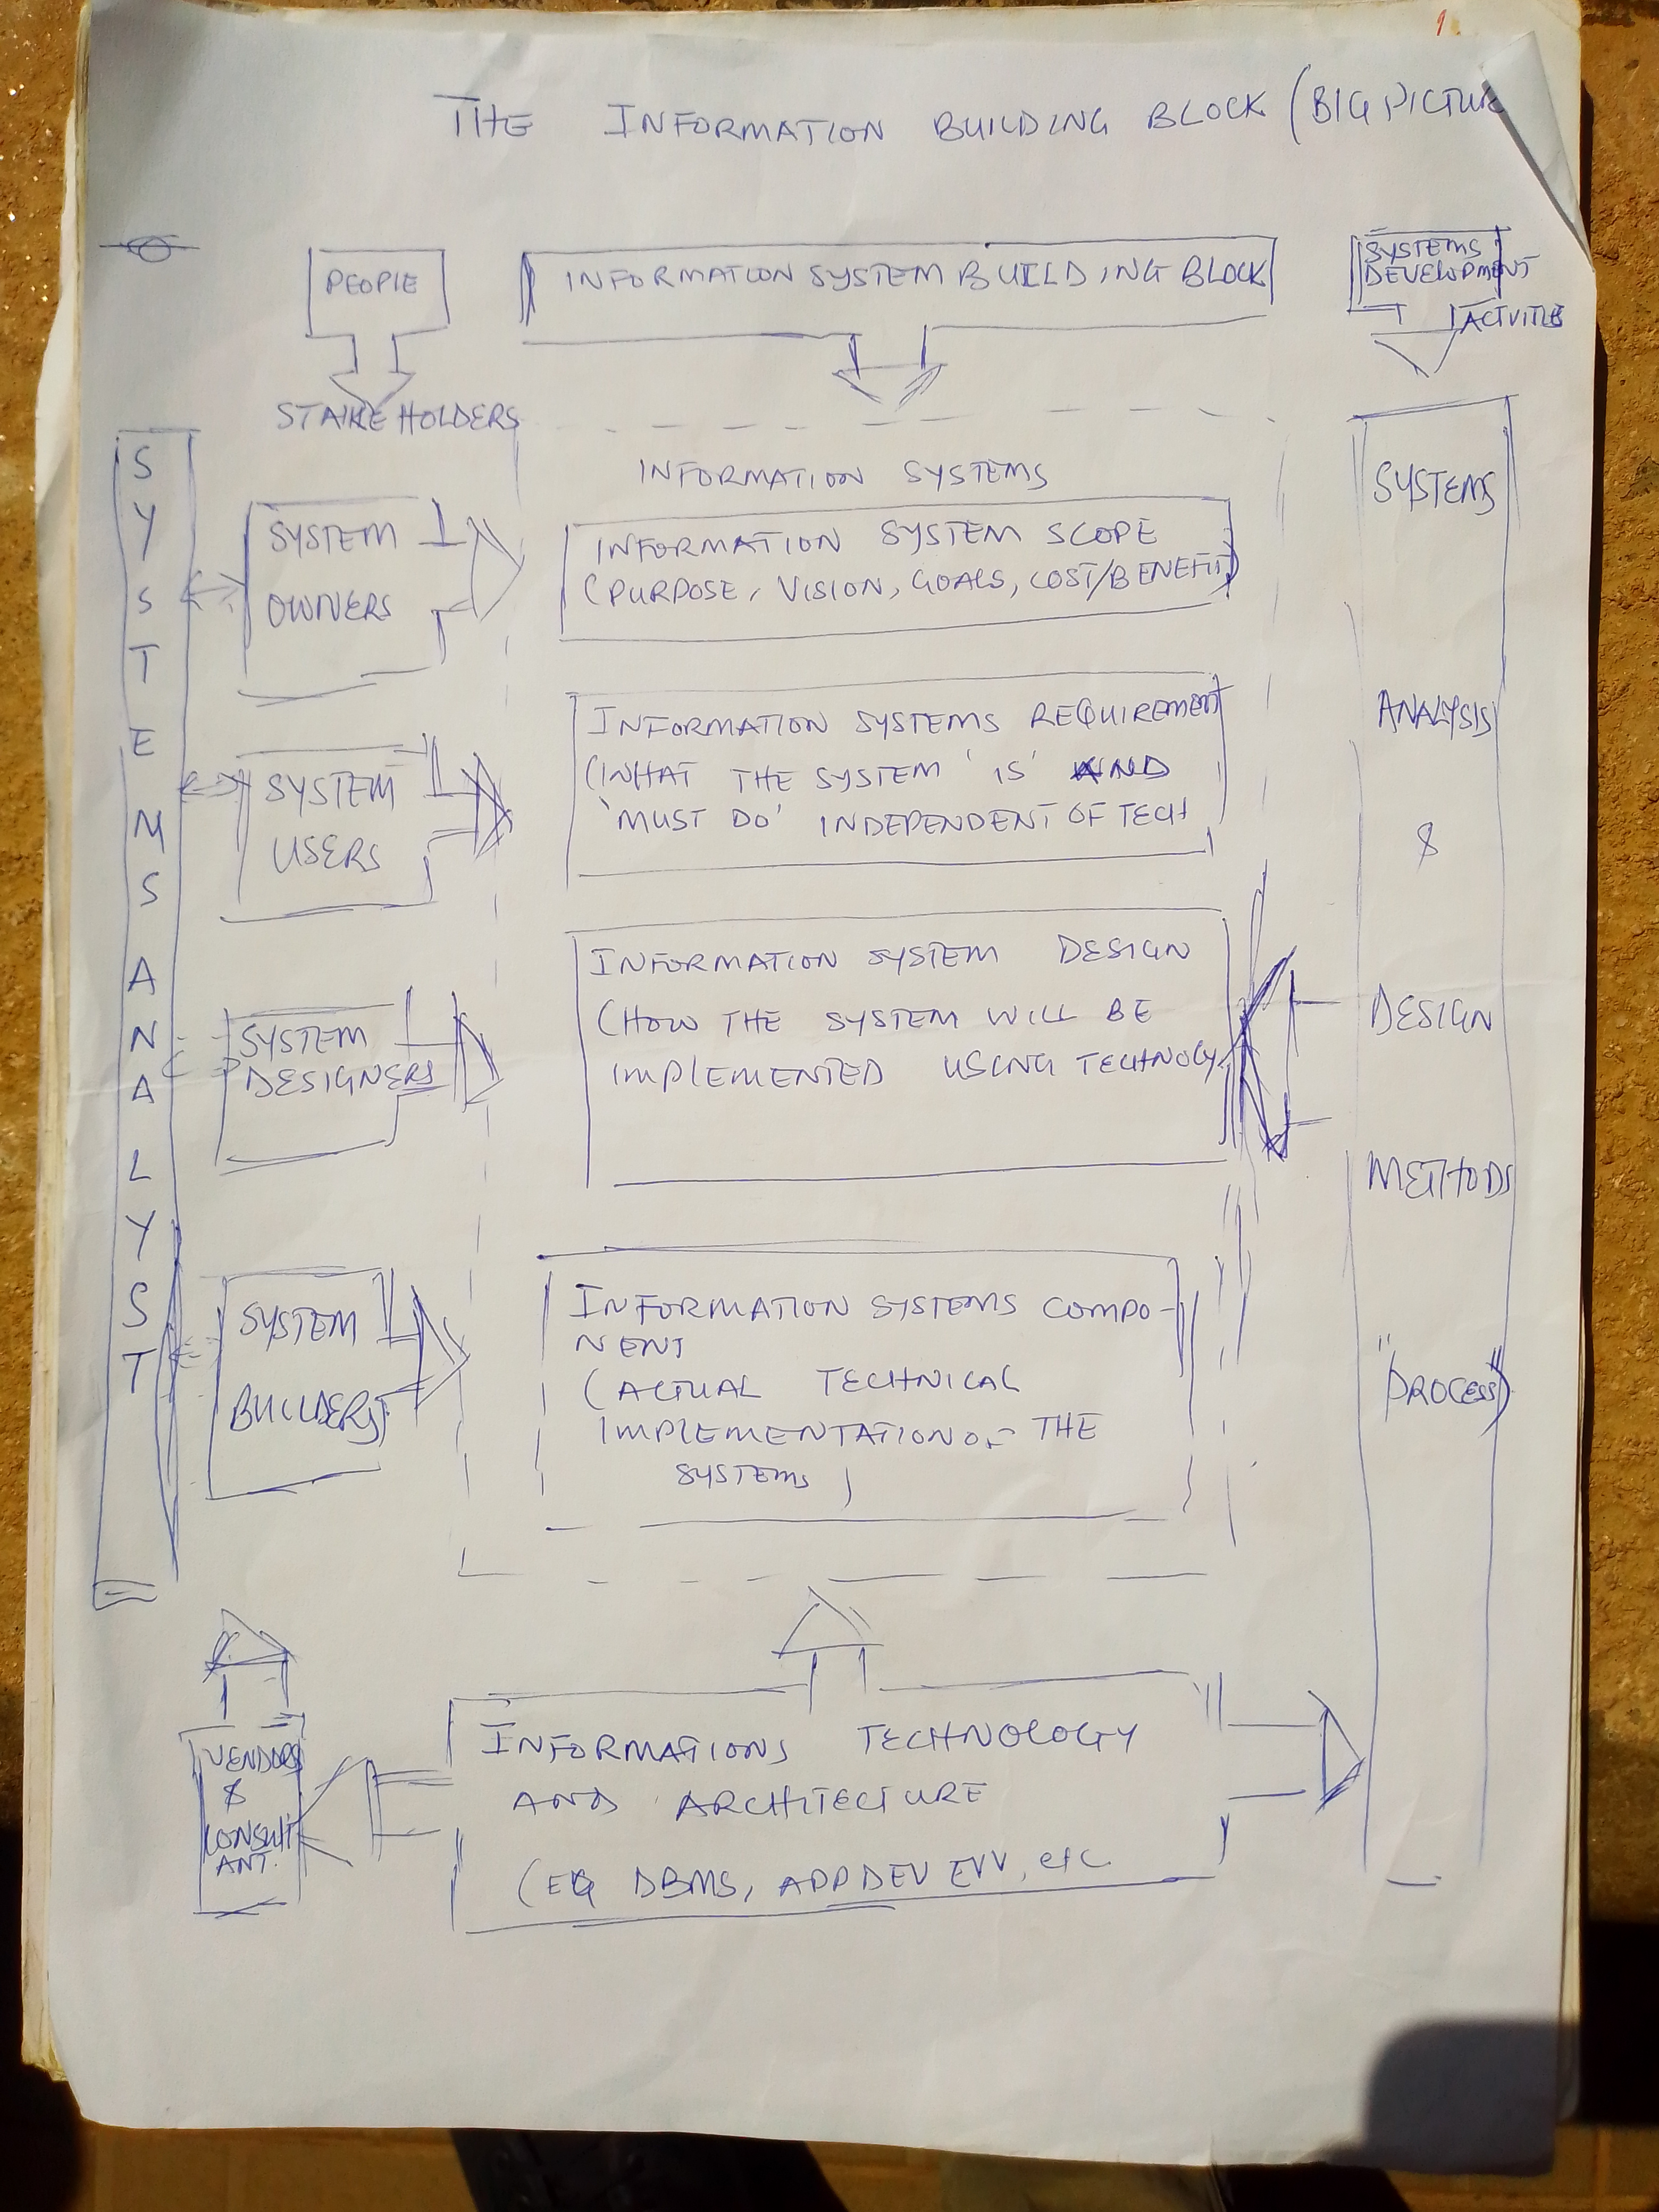 THE INFORMATION BUILDING BLOCK (BIG PICTUR
PEOPLE
INFORMATION SYSTEM BUILDING BLOCK
SYSTEMS
DEVELOPMENT
ACTVITIES
STAKEHOLDERS
SYSTEMS ANALYST
INFORMATION SYSTEMS
SYSTEM
OWNERS
INFORMATION SYSTEM SCOPE
(PURPOSE, VISION, GOALS, COST/BENEFIT)
SYSTEM
USERS
INFORMATION SYSTEMS REQUIREMENT
(WHAT THE SYSTEM 'IS' AND
'MUST DO' INDEPENDENT OF TECH
SYSTEM
DESIGNERS
INFORMATION SYSTEM DESIGN
(HOW THE SYSTEM WILL BE
IMPLEMENTED USING TECHNOLGY
SYSTEM
BUILDERS
INFORMATION SYSTEMS COMPO-
NENT
(ACTUAL TECHNICAL
IMPLEMENTATION OF THE
SYSTEMS)
SYSTEMS
ANALYSIS
&
DESIGN
METHODS
"PROCESS"
VENDORS
&
CONSULT
ANT.
INFORMATIONS TECHNOLOGY
AND ARCHITECTURE
(EG DBMS, APP DEV ENV, etc